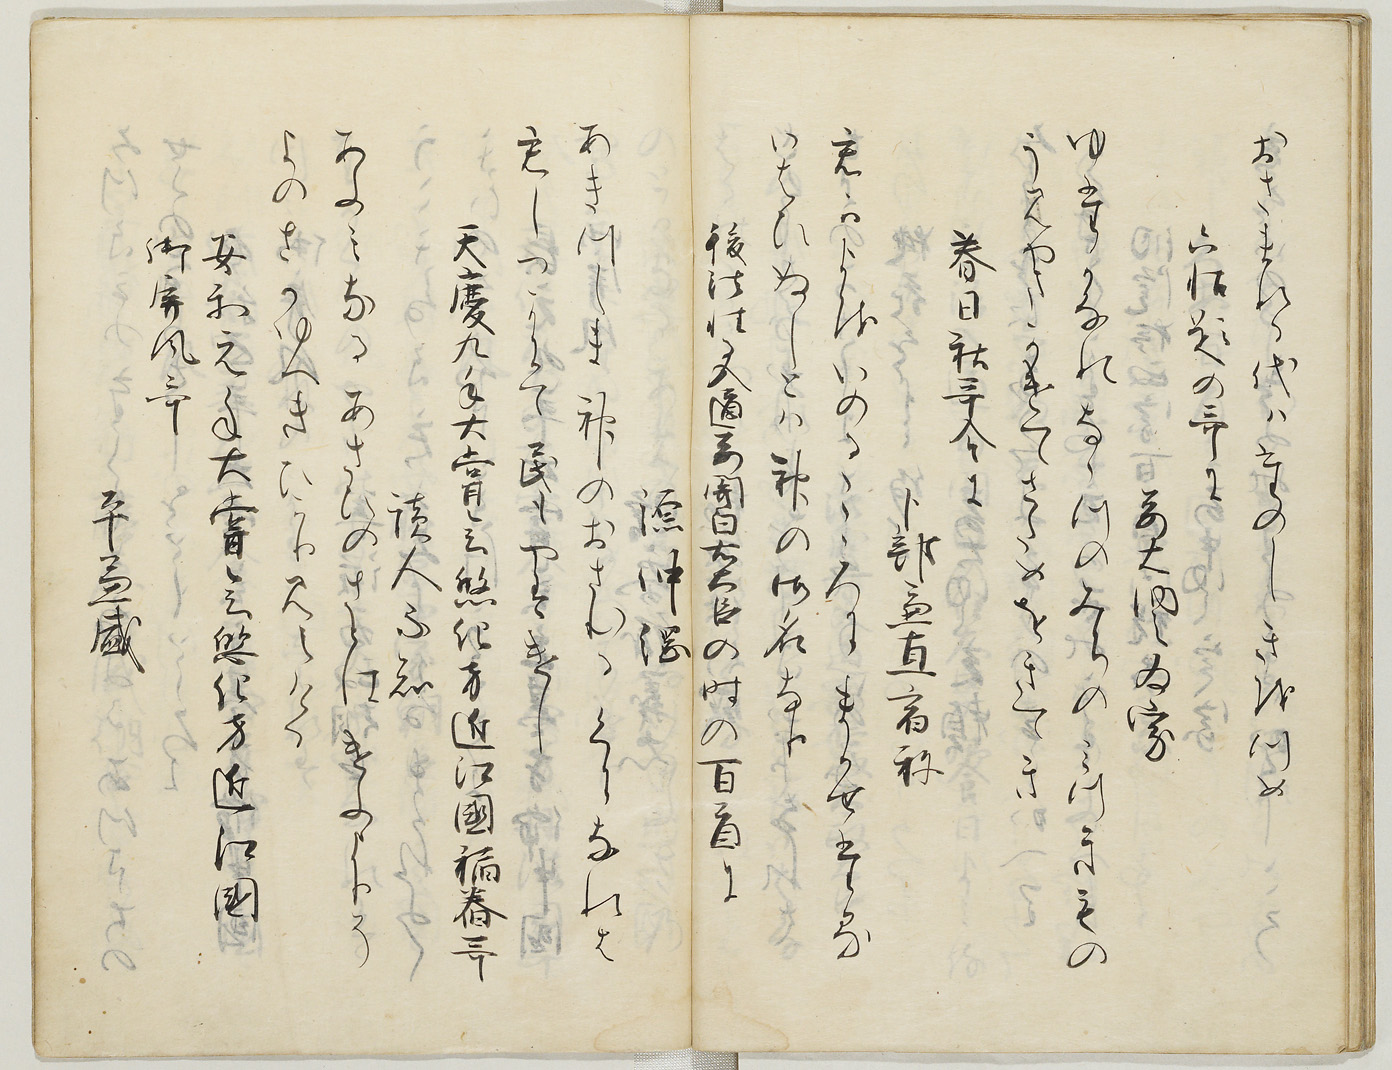 おさまれる代はたのしきをつめ
六帖題の哥に
前大納言為家
ゆたかなれなゝつのみちのみつきもの
うみやまかけてさためをきてき
春日社哥合に
卜部兼直宿祢
いのるこゝろにまかせたる
いはひぬしとは神の御名なり
後法性寺入道前関白右大臣の時の百首に
源仲綱
あきつしま神のおさむるくになれは
君しつかにて民もやすけし
天慶九年大嘗会悠紀方近江國稲舂哥
読人不知
あふみなるあさひのさとはけふよりそ
よのさかゆへきひかりみえける
安和元年大嘗会悠紀方近江國
御屏風哥
平兼盛